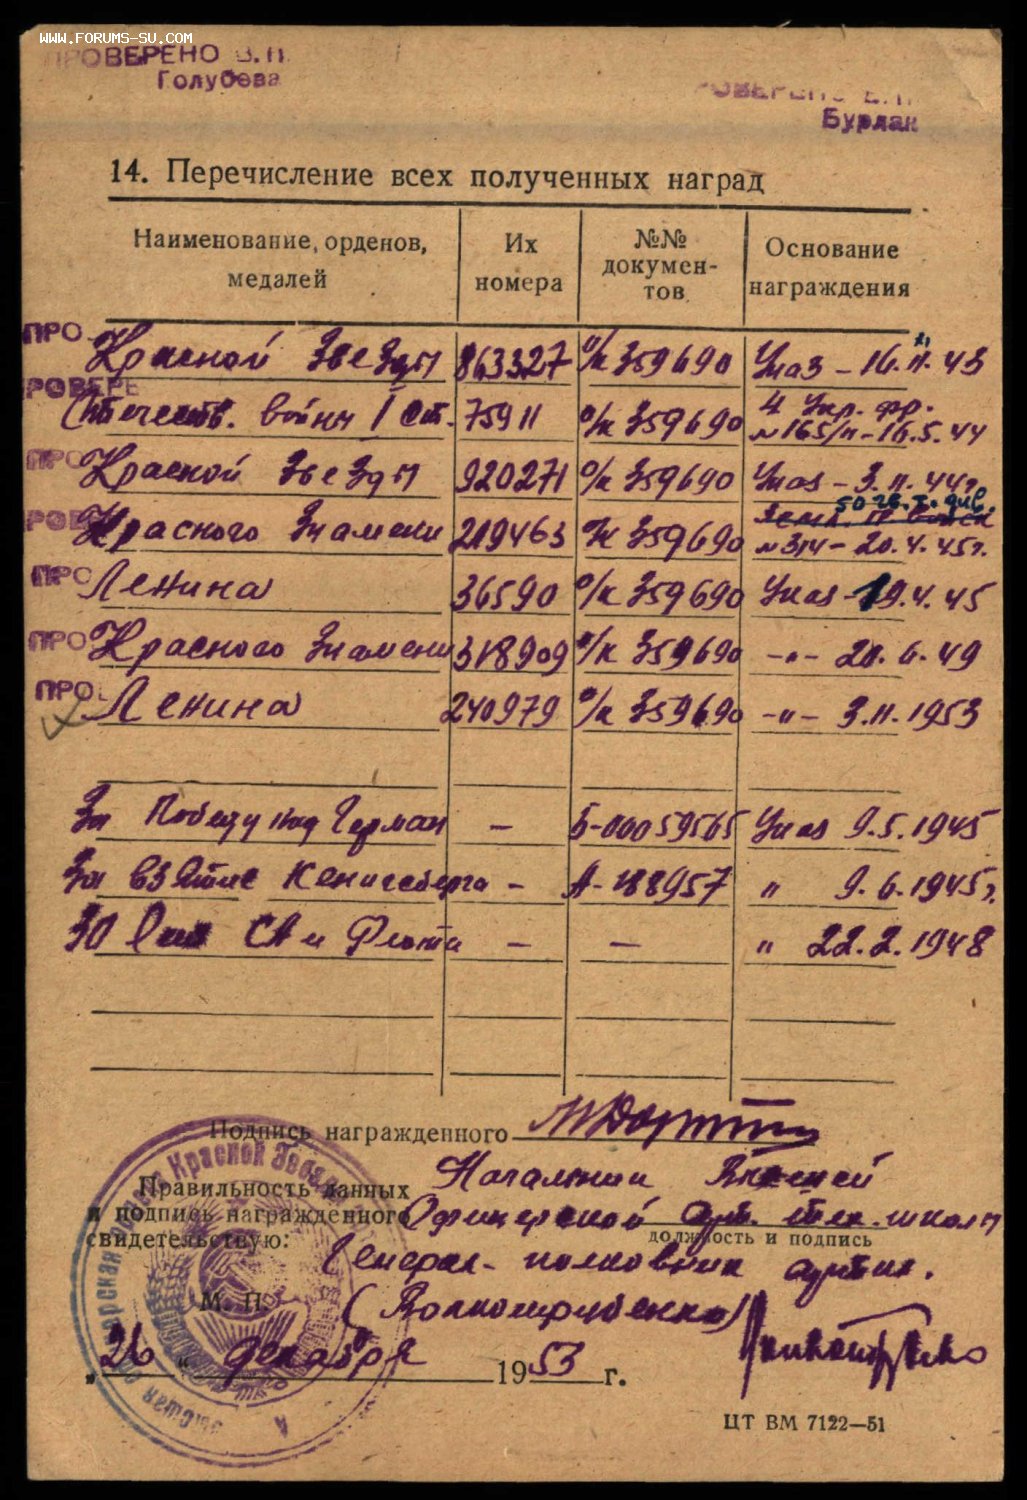 www.forums-su.com
ПРОВЕРЕНО В.П.
Голубева
РОВЕРЕНО
Бурлак
14. Перечисление всех полученных наград
Наименование, орденов, медалей Их номера №№ документов Основание награждения
ПРО Красной Звезды 863327 о/к 359690 Указ - 16.11.43
РОВЕРЕ Отечеств. войны I ст. 75911 о/к 359690 4 Укр. фр. №165/н - 16.5.44
ПРО Красной Звезды 920271 о/к 359690 Указ - 3.11.44г.
РОВЕ Красного Знамени 219463 о/к 359690 50 гв. т. див. №314 - 20.4.45г.
ПРО Ленина 36590 о/к 359690 Указ - 19.4.45
ПРО Красного Знамени 318909 о/к 359690 -"- 20.6.49
ПРОВ Ленина 240979 о/к 359690 -"- 3.11.1953
За Победу над Герман — Б-00059565 Указ 9.5.1945
За взятие Кенигсберга - А-188957 " 9.6.1945г.
30 лет СА и Флота — — " 22.2.1948
Подпись награжденного
Правильность данных
и подпись награжденного
свидетельствую:
Начальник Высшей
Офицерской арт. тех. школы
должность и подпись
Генерал-полковник артил.
(Волкотрубенко)
М. П.
„26" декабря 1953 г.
Высшая Офицерская
Красной Звезды
ЦТ ВМ 7122—51